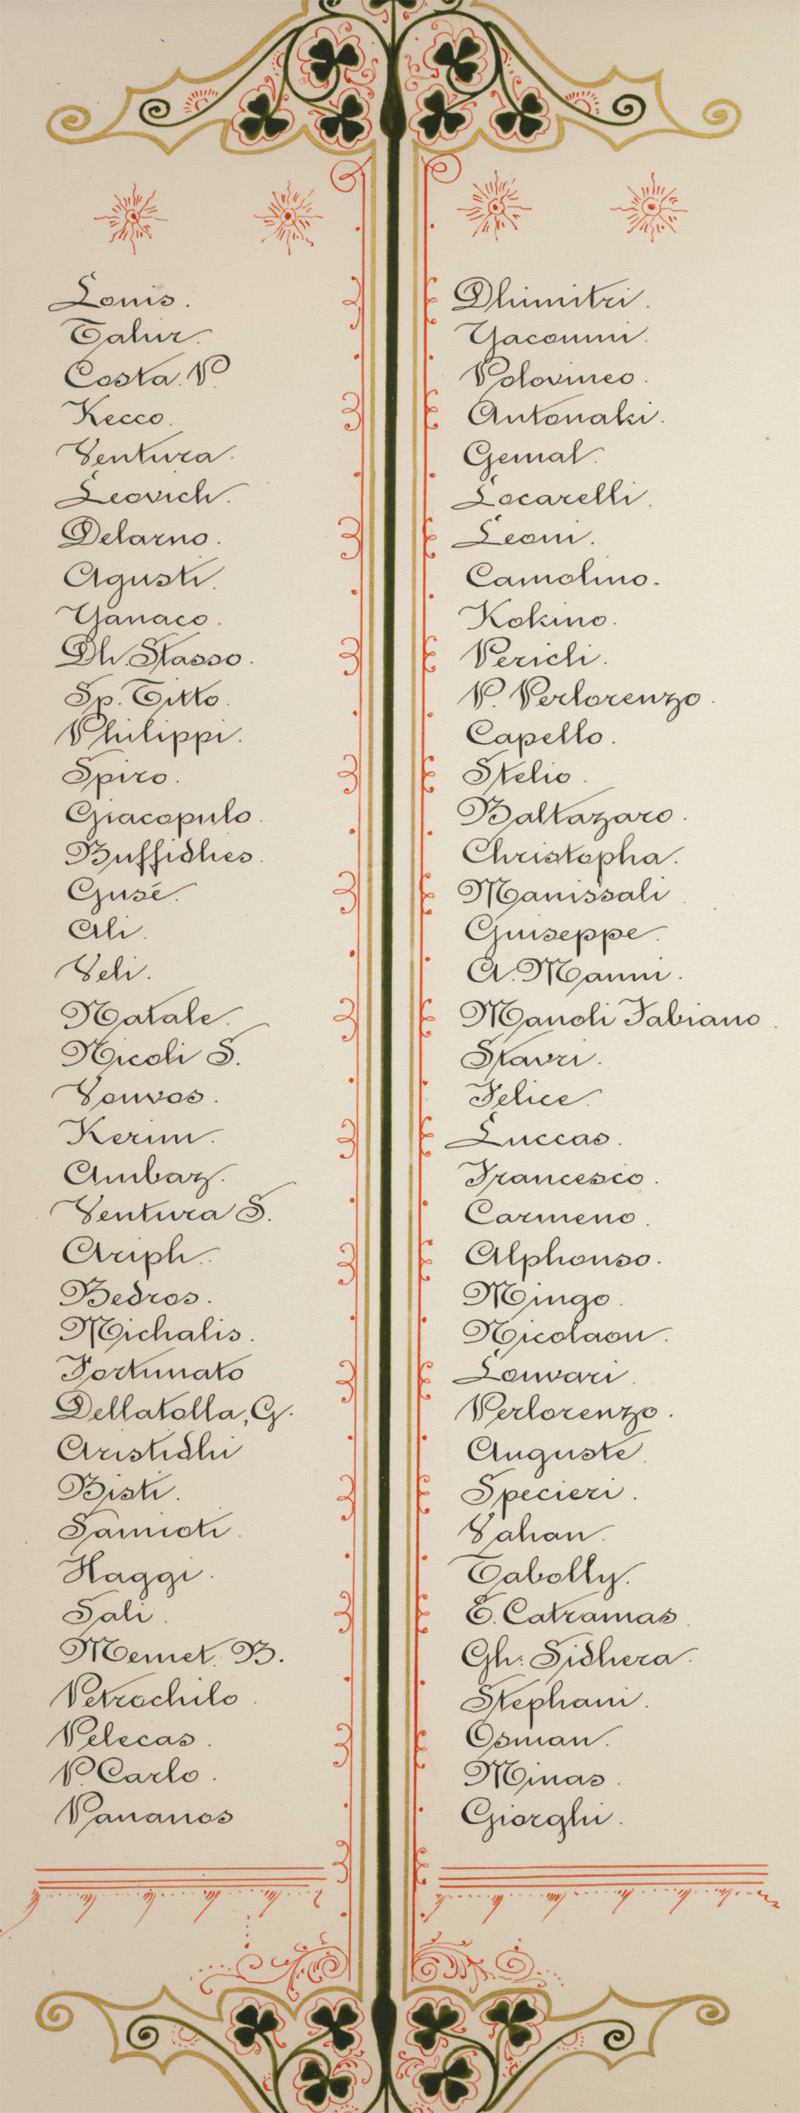 Louis.
Tahir.
Costa. P.
Kecco.
Ventura.
Leovich.
Delarno.
Agusti.
Yanaco.
Dh. Stasso.
Sp. Titto.
Philippi.
Spiro.
Giacopulo.
Buffidhes.
Gusé.
Ali.
Veli.
Natale.
Nicoli S.
Vouvos.
Kerim.
Ambaz.
Ventura S.
Ariph.
Bedros.
Michalis.
Fortunato
Dellatolla, G.
Aristidhi
Bisti.
Samioti.
Haggi.
Sali.
Memet. B.
Petrochilo.
Pelecas.
P. Carlo.
Pananos
Dhimitri.
Yacoumi.
Polovineo.
Antonaki.
Gemal.
Locarelli.
Leoni.
Camolino.
Kokino.
Pericli.
P. Perlorenzo.
Capello.
Stelio.
Baltazaro.
Christopha.
Manissali.
Guiseppe.
A. Manni.
Manoli Fabiano.
Stavri.
Felice.
Luccas.
Francesco.
Carmeno.
Alphonso.
Mingo.
Nicolaou.
Louvari.
Perlorenzo.
Auguste.
Specieri.
Vahan.
Tabolly.
E. Catramas.
Gh: Sidhera.
Stephani.
Osman.
Minas.
Giorghi.